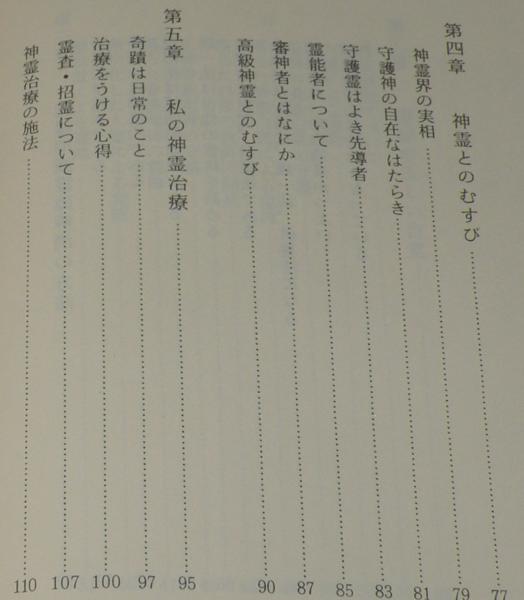 第四章 神霊とのむすび……77
神霊界の実相……79
守護神の自在なはたらき……81
守護霊はよき先導者……83
霊能者について……85
審神者とはなにか……87
高級神霊とのむすび……90
第五章 私の神霊治療……95
奇蹟は日常のこと……97
治療をうける心得……100
霊査・招霊について……107
神霊治療の施法……110